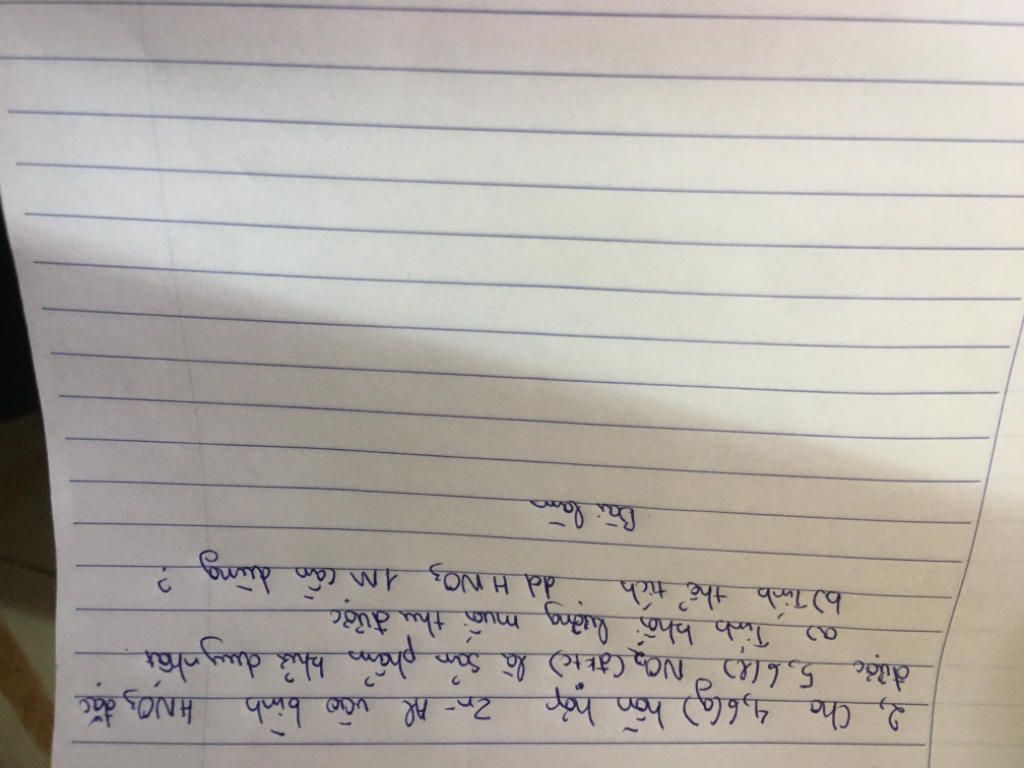 2, Cho 4,6(g) hỗn hợp Zn-Al vào bình HNO3 đặc
được 5,6(l) NO2 (đktc) là sản phẩm khử duy nhất
a) Tính khối lượng muối thu được
b) Tính thể tích dd HNO3 1M cần dùng?
Bài làm